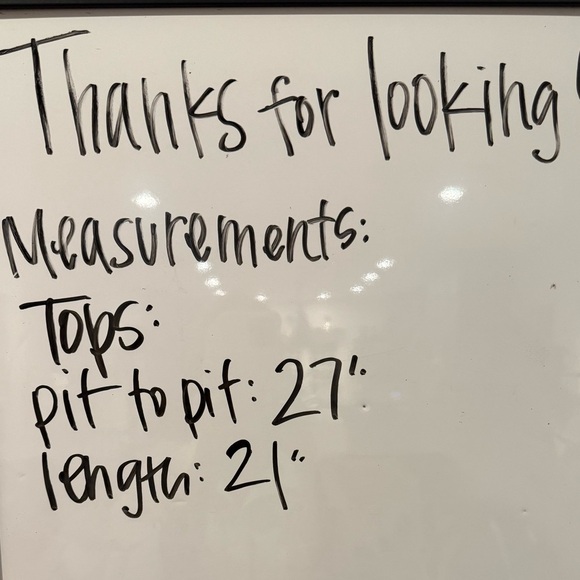 Thanks for looking
Measurements:
Tops:
pit to pit: 27"
length: 21"